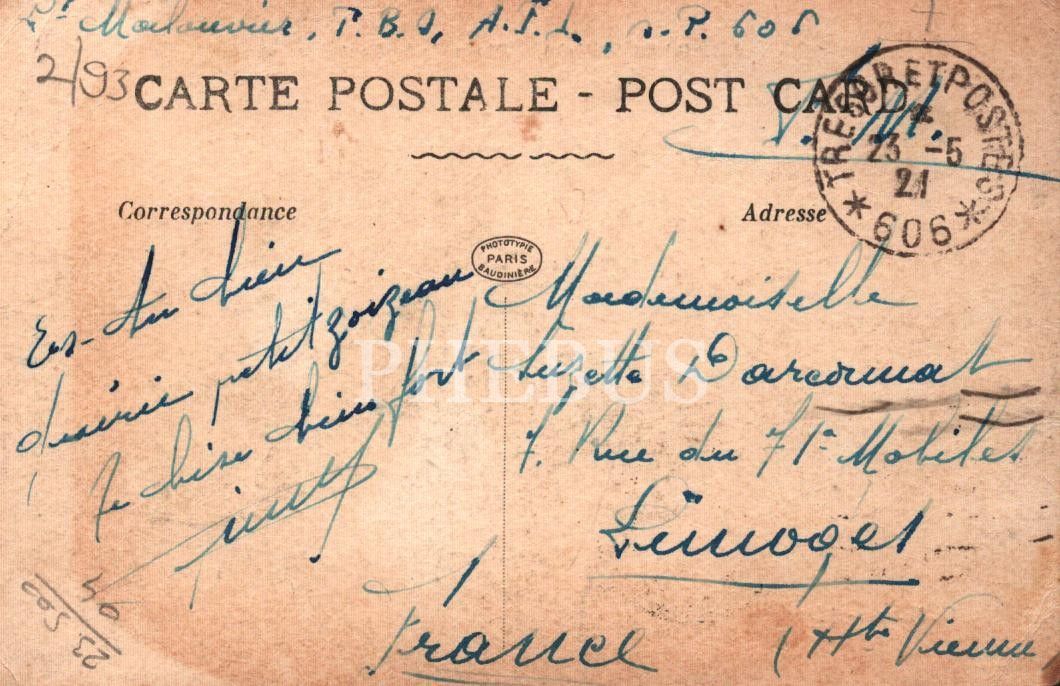 Lt Malauvier, T.B.I, A.F.L., s.P. 606
2/93
CARTE POSTALE - POST CARD
F.M.
TRESOR ET POSTES
*
23 -5
21
* 606 *
Correspondance
Adresse
PHOTOTYPIE
PARIS
BAUDINIÈRE
Es-tu bien
petit zoizeau
Je bise bien fort
Mademoiselle
Suzette Darcounat
7. Rue du 71e Mobiles
Limoges
France
(Hte Vienne
PHEBUS
23 502
04